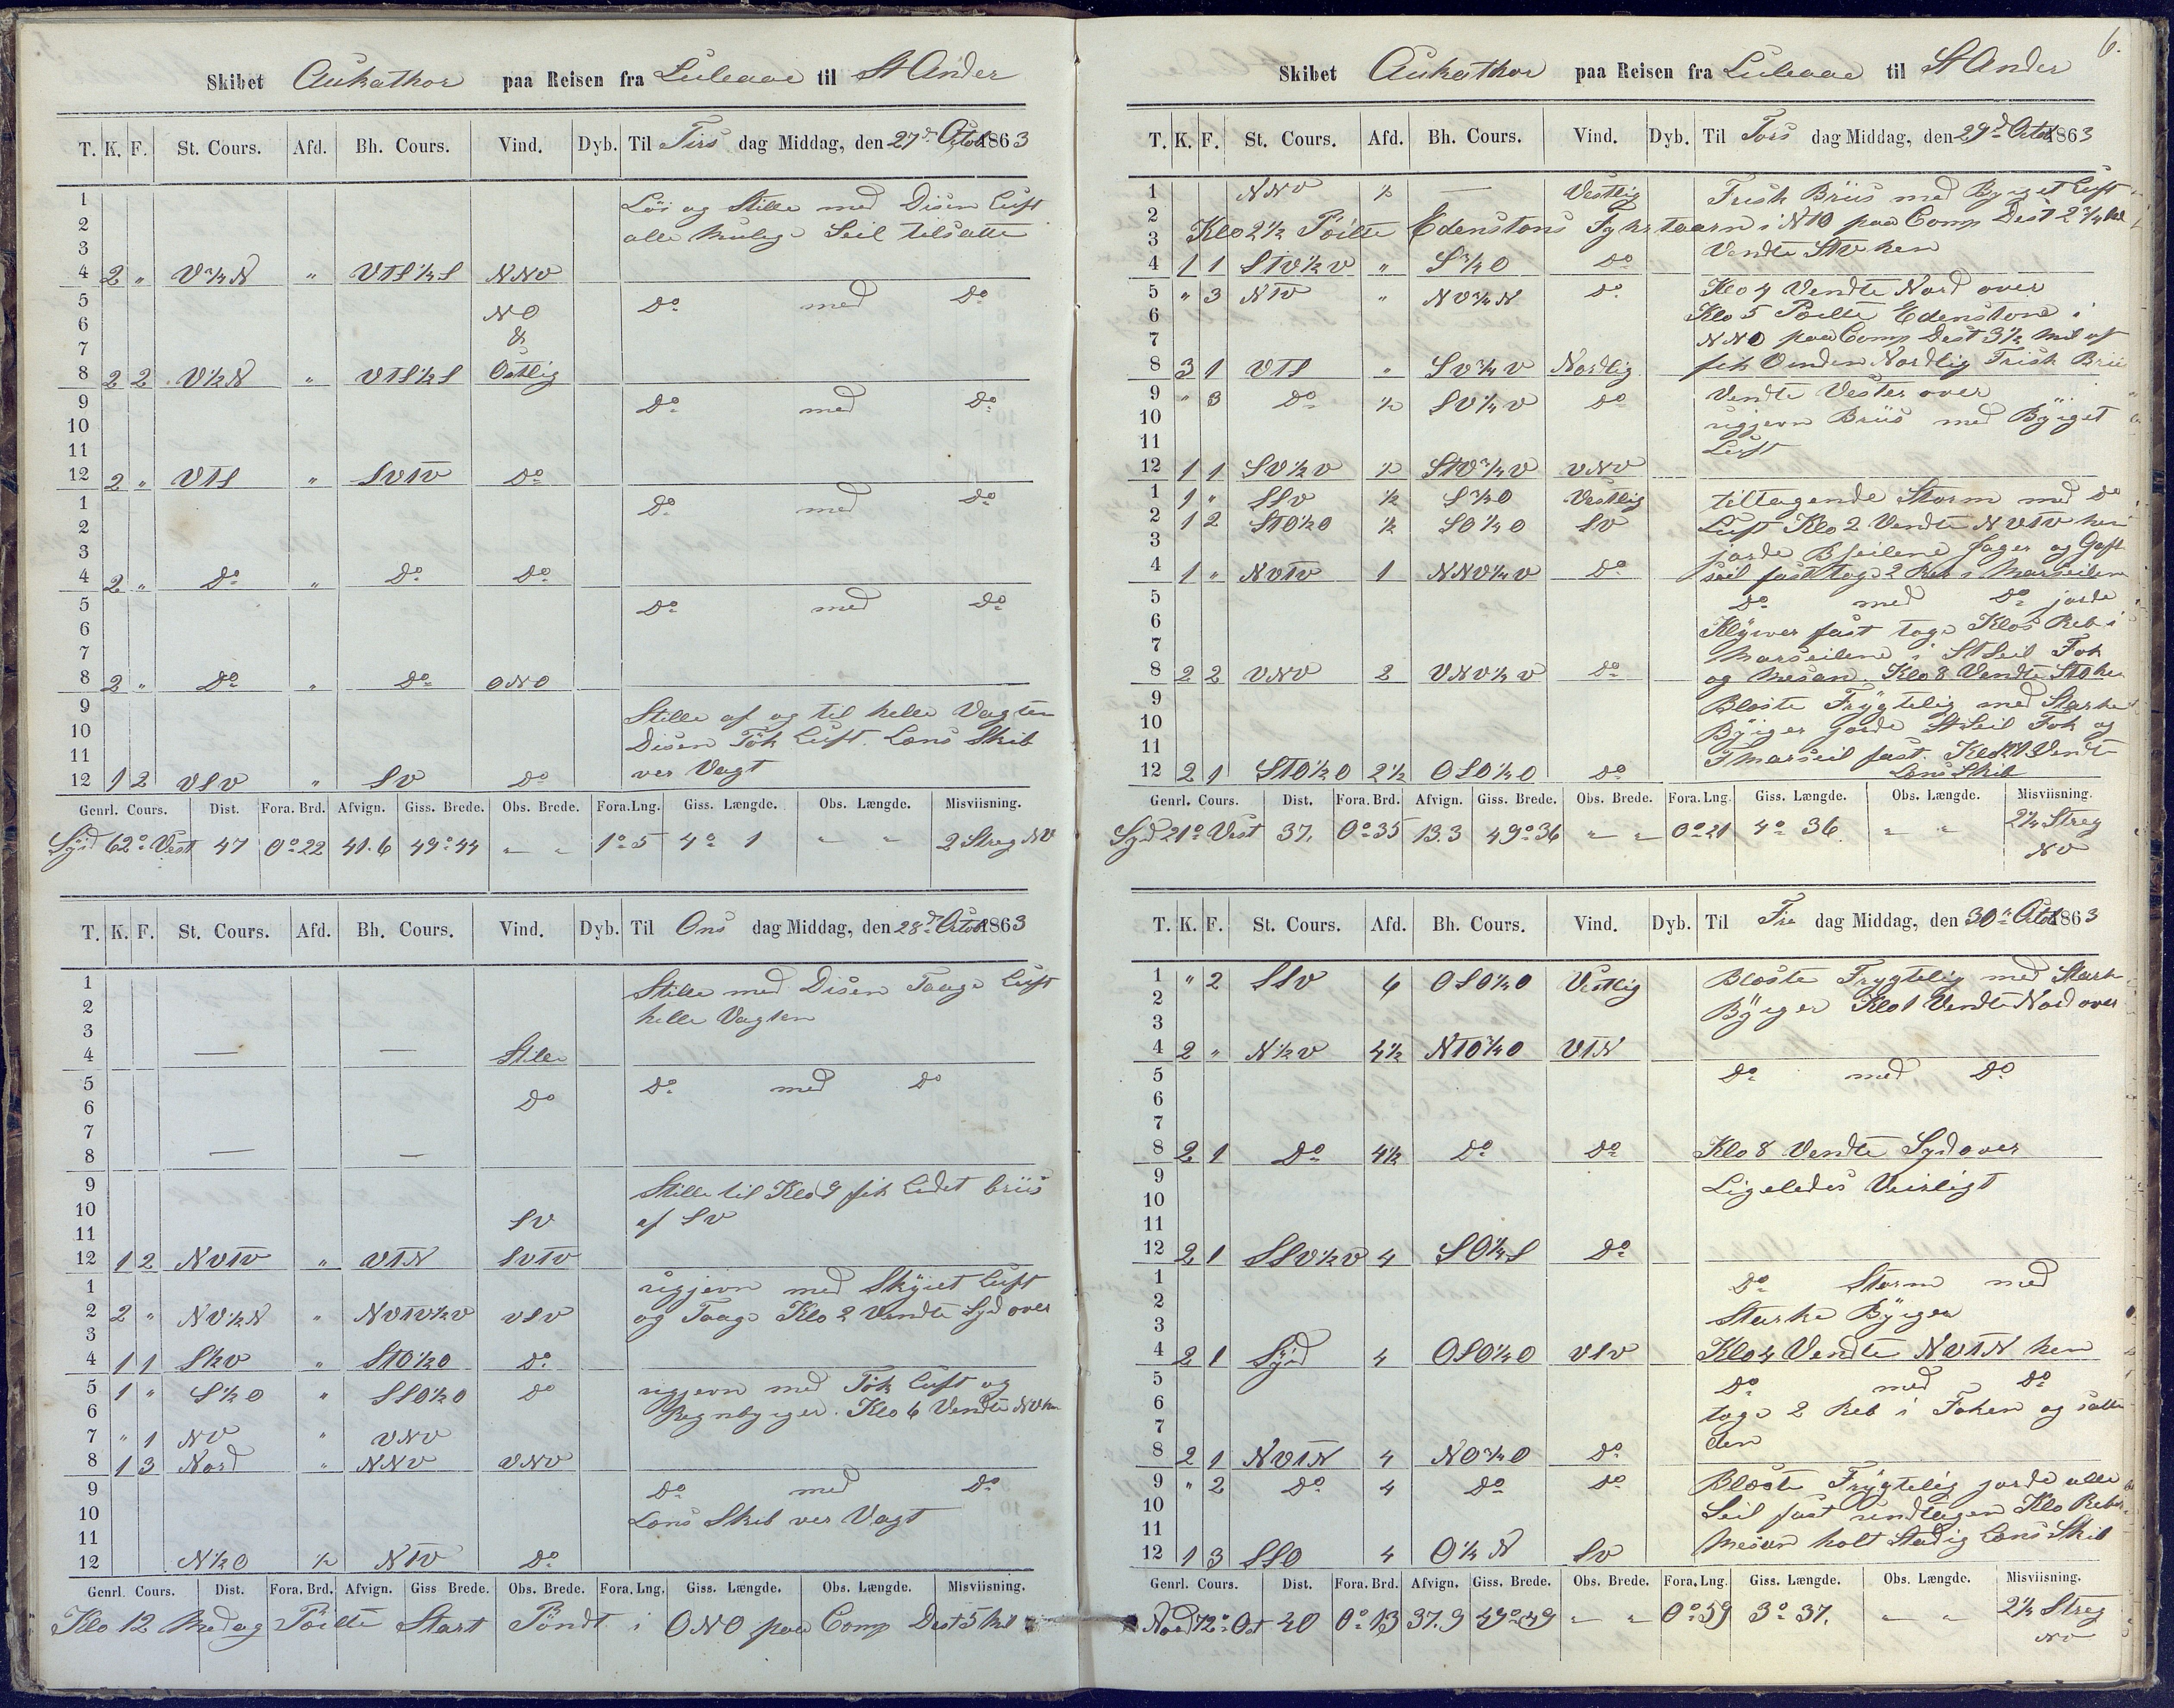 Skibet Aukathor paa Reisen fra Luleaae til St Ander
T. K. F. St. Cours. Afd. Bh. Cours. Vind. Dyb. Til Tirs dag Middag, den 27de Octob 1863
1 Löi og Stille med Disen Luft
2 alle mulige Seil tilsatte
3
4 2 " V¾N " VTS½S NNV
5 NO Do med Do
6 &
7
8 2 2 V½N " VTS½S Östlig
9 Do med Do
10
11
12 2 " VTS " SVTV Do
1 Do med Do
2
3
4 2 " Do " Do Do
5 Do med Do
6
7
8 2 " Do " Do ONO
9 Stille af og til helle Vagten
10 Disen Tök Luft. Lens Skib
11 ver Vagt
12 1 2 VSV " SV Do
Genrl. Cours. Dist. Fora. Brd. Afvign. Giss. Brede. Obs. Brede. Fora. Lng. Giss. Længde. Obs. Længde. Misviisning.
Syd 62° Vest 47 0°22 41.6 49°44 " " 1°5 4° 1 " " 2 Streg NV
T. K. F. St. Cours. Afd. Bh. Cours. Vind. Dyb. Til Ons dag Middag, den 28de Octob 1863
1 Stille med Disen Taage Luft
2 helle Vagten
3
4 — — Stille
5 Do med Do
6 Do
7
8 — —
9 Stille til Klo 9 fik Ledet briis
10 SV af SV
11
12 1 2 NVTV " VTN SVTV
1 uigjevn med Skyiet Luft
2 2 " NV½N " NVTV½V VSV og Taage Klo 2 Vendte Syd over
3
4 1 1 S½V " STO½O Do
5 1 " S½O " SSO½O Do uigjevn med Tök Luft og
6 Regnbyiger. Klo 6 Vendte NV hen
7 " 1 NV " VNV
8 1 3 Nord " NNV VNV
9 Do med Do
10 Lens Skib ver Vagt
11
12 N½O ½ NTV Do
Genrl. Cours. Dist. Fora. Brd. Afvign. Giss Brede. Obs. Brede. Fora. Lng. Giss. Længde. Obs. Længde. Misviisning.
Klo 12 Medag Pöilte Start Pöndt i ONO paa Comp Dest 5 Mil
6.
Skibet Aukathor paa Reisen fra Luleaae til St Ander
T. K. F. St. Cours. Afd. Bh. Cours. Vind. Dyb. Til Tors dag Middag, den 29de Octob 1863
1 NNV ½ — Vestlig Frisk Briis med Byiget Luft
2 Klo 2½ Pöilte Edenstons Fyhrtaarn i NTO paa Comp Dest 2¾ Mil
3 Vendte STV hen
4 1 1 STV½V " S¾O Do
5 " 3 NTV " NV¾N Do Klo 4 Vendte Nord over
6 Klo 5 Pöilte Edenstone i
7 NNO paa Comp Dest 3½ Mil af
8 3 1 VTS " SV¾V Nordlig fik Vinden Nordlig Frisk Brii
9 " 3 Do ½ SV¼V Do Vendte Vester over
10 uigjevn Briis med Byiget
11 Luft
12 1 1 SV½V ½ STV¾V VNV
1 1 " SSV ½ S¾O Vestlig tiltagende Storm med Do
2 1 2 STO½O ½ SO¼O SV Luft Klo 2 Vendte NVTV hen
3 jorde Bseilene Jager og Gaft
4 1 " NVTV 1 NNV¼V Do seil fast toge 2 Reb i Marseilene
5 Do med Do jorde
6 Klÿver fast toge Klos Reb i
7 Marseilene i StSeil Fok
8 2 2 VNV 2 VNV½V Do og Mesan. Klo 8 Vendte STO hen
9 Bloste Frygtelig med Starke
10 Byiger jorde StSeil Fok og
11 FMarseil fast. Klo Vendt
12 2 1 STO½O 2½ OSO½O Do Lens Skib
Genrl. Cours. Dist. Fora. Brd. Afvign. Giss. Brede. Obs. Brede. Fora. Lng. Giss. Længde. Obs. Længde. Misviisning.
Syd 21° Vest 37. 0°35 13.3 49°36 " " 0°21 4° 36 " " 2¼ Streg NV
T. K. F. St. Cours. Afd. Bh. Cours. Vind. Dyb. Til Fre dag Middag, den 30te Octob 1863
1 " 2 SSV 4 OSO¼O Vestlig Bloste Frygtelig med Starke
2 Byiger Klo 1 Vendte Nord over
3
4 2 " N½V 4½ NTO¾O VTN
5 Do med Do
6
7
8 2 1 Do 4½ Do Do Klo 8 Vendte Syd over
9 Ligeledes Veirligt
10
11
12 2 1 SSV½V 4 SO¼S Do
1 Do Storm med
2 Starke Byiger
3
4 2 1 Syd 4 OSO¼O VSV Klo 4 Vendte NVTN hen
5 Do med Do
6 toge 2 Reb i Foken og satte
7 den
8 2 1 NVTN 4 NO¾O Do
9 " 2 Do 4 Do Do Bloste Frygtelig jorde alle
10 Seil fast undtagen Klo Rebs
11 Mesan holt Stadig Lens Skib
12 1 3 SSO 4 O¼N SV
Genrl. Cours. Dist. Fora. Brd. Afvign. Giss. Brede. Obs. Brede. Fora. Lng. Giss. Længde. Obs. Længde. Misviisning.
Nord 72° Ost 40 0°13 37.9 49°49 " " 0°59 3° 37. " " 2¼ Streg NV